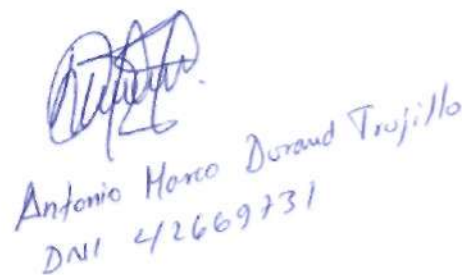 Antonio Marco Durand Trujillo
DNI 42669731